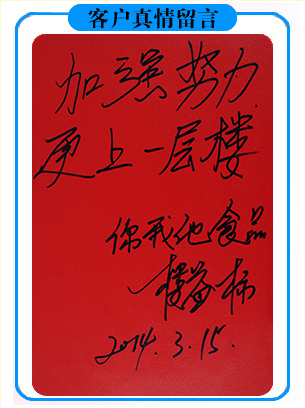 客户真情留言
加强努力
更上一层楼
你我他食品
楼益栋
2014.3.15.